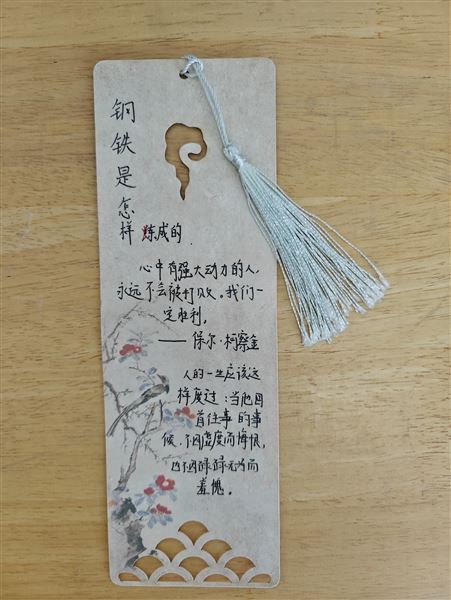 钢铁是怎样炼成的
心中有强大动力的人,
永远不会被打败。我们一
定胜利。
——保尔·柯察金
人的一生应该这
样度过:当他回
首往事的事
候,不因虚度而悔恨,
也不因碌碌无为而
羞愧。